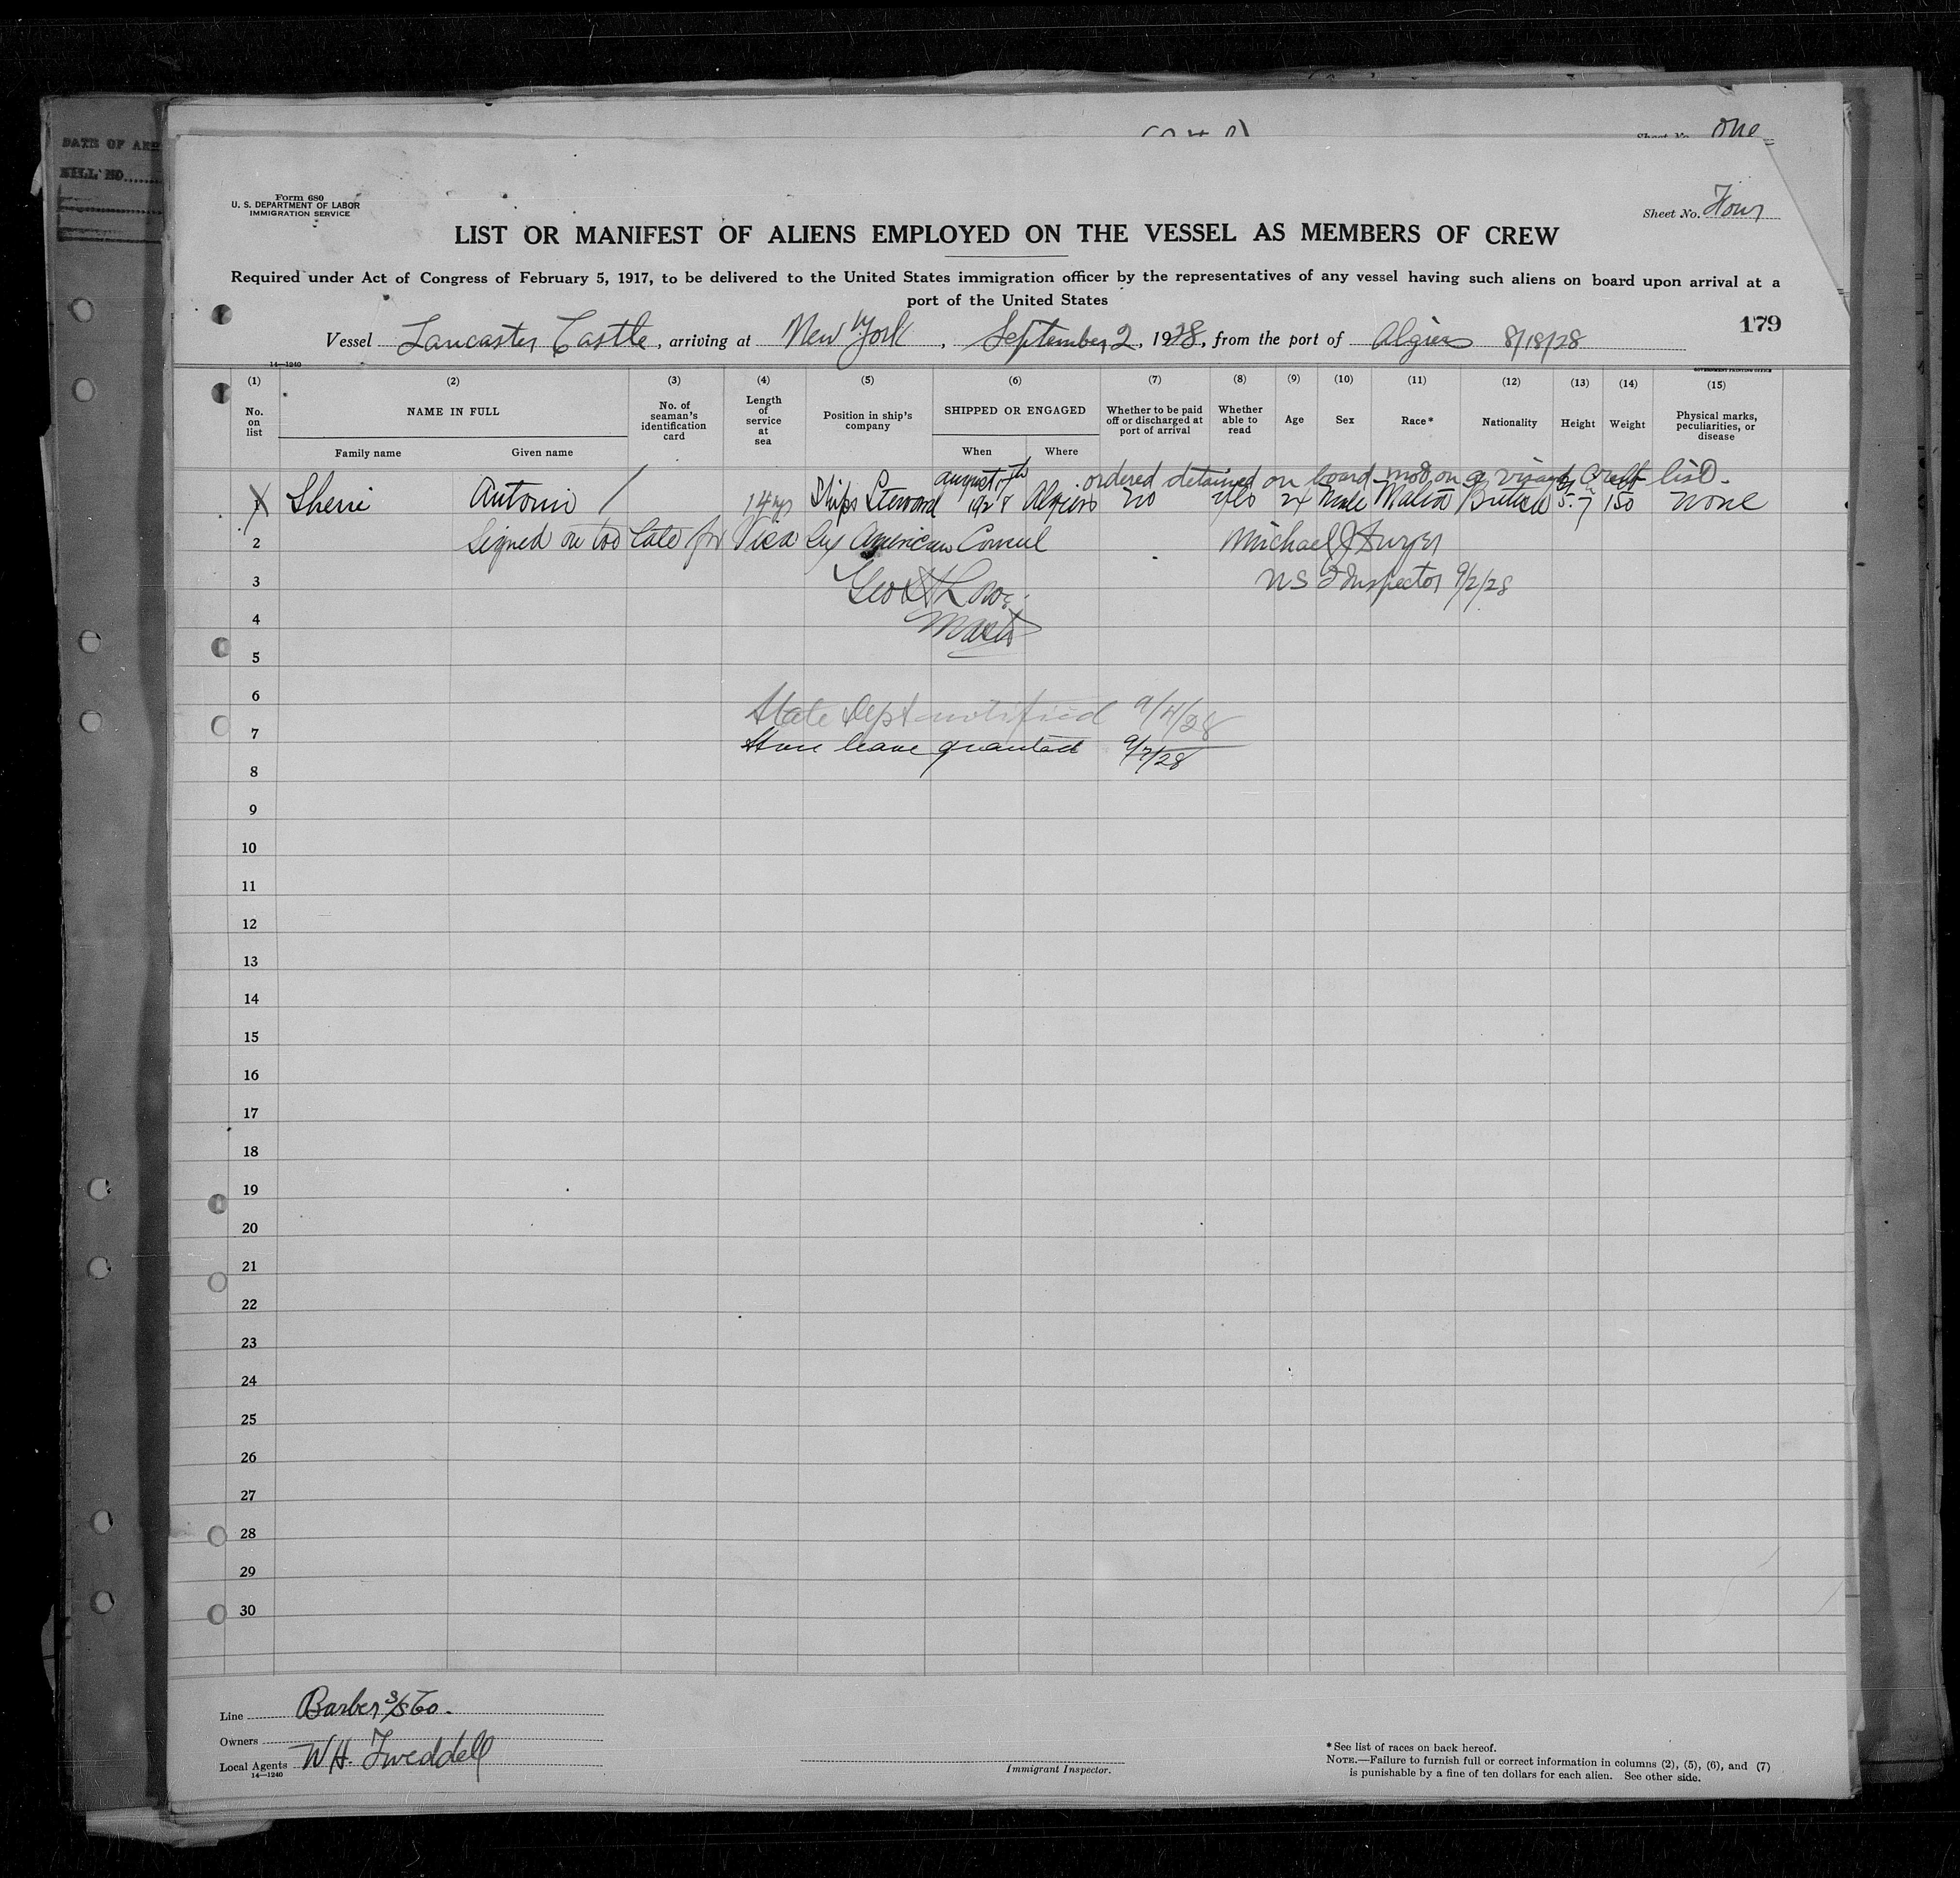 DATE OF ARR
BILL NO.
Sheet No. One
Form 680
U. S. DEPARTMENT OF LABOR
IMMIGRATION SERVICE
Sheet No. Four
LIST OR MANIFEST OF ALIENS EMPLOYED ON THE VESSEL AS MEMBERS OF CREW
Required under Act of Congress of February 5, 1917, to be delivered to the United States immigration officer by the representatives of any vessel having such aliens on board upon arrival at a
port of the United States
179
Vessel Lancaster Castle, arriving at New York, September 2, 1928, from the port of Algiers 8/18/28
14—1240
GOVERNMENT PRINTING OFFICE
(1) (2) (3) (4) (5) (6) (7) (8) (9) (10) (11) (12) (13) (14) (15)
No. on list
NAME IN FULL
Family name Given name
No. of seaman's identification card
Length of service at sea
Position in ship's company
SHIPPED OR ENGAGED
When Where
Whether to be paid off or discharged at port of arrival
Whether able to read
Age
Sex
Race*
Nationality
Height
Weight
Physical marks, peculiarities, or disease
ordered detained on board not on a visaed crew list.
Sherri Antonio 14 yrs Ships Steward August 17th 1928 Algiers no yes 24 Male Malta British 5-7 150 none
2 Signed on too late for Visa by American Consul Michael J Dwyer
3 Geo H Low US I Inspector 9/2/28
4 Master
5
6
State Dept notified 9/4/28
7
Shore leave granted 9/7/28
8
9
10
11
12
13
14
15
16
17
18
19
20
21
22
23
24
25
26
27
28
29
30
Line Barber S/S Co.
Owners
Local Agents W H. Tweddell
14—1240
Immigrant Inspector.
*See list of races on back hereof.
NOTE.—Failure to furnish full or correct information in columns (2), (5), (6), and (7)
is punishable by a fine of ten dollars for each alien. See other side.